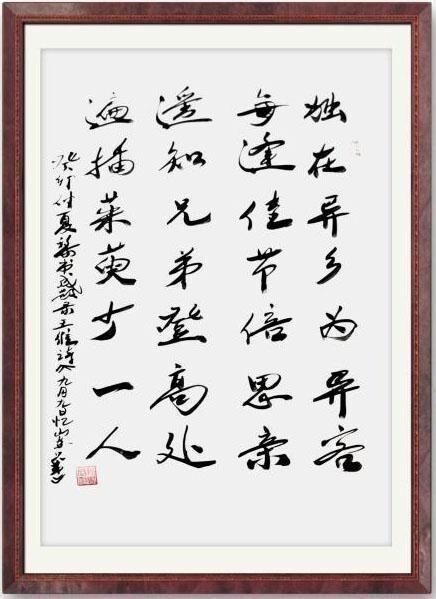 独在异乡为异客
每逢佳节倍思亲
遥知兄弟登高处
遍插茱萸少一人
癸巳仲夏 书 录王维诗 九月九日忆山东